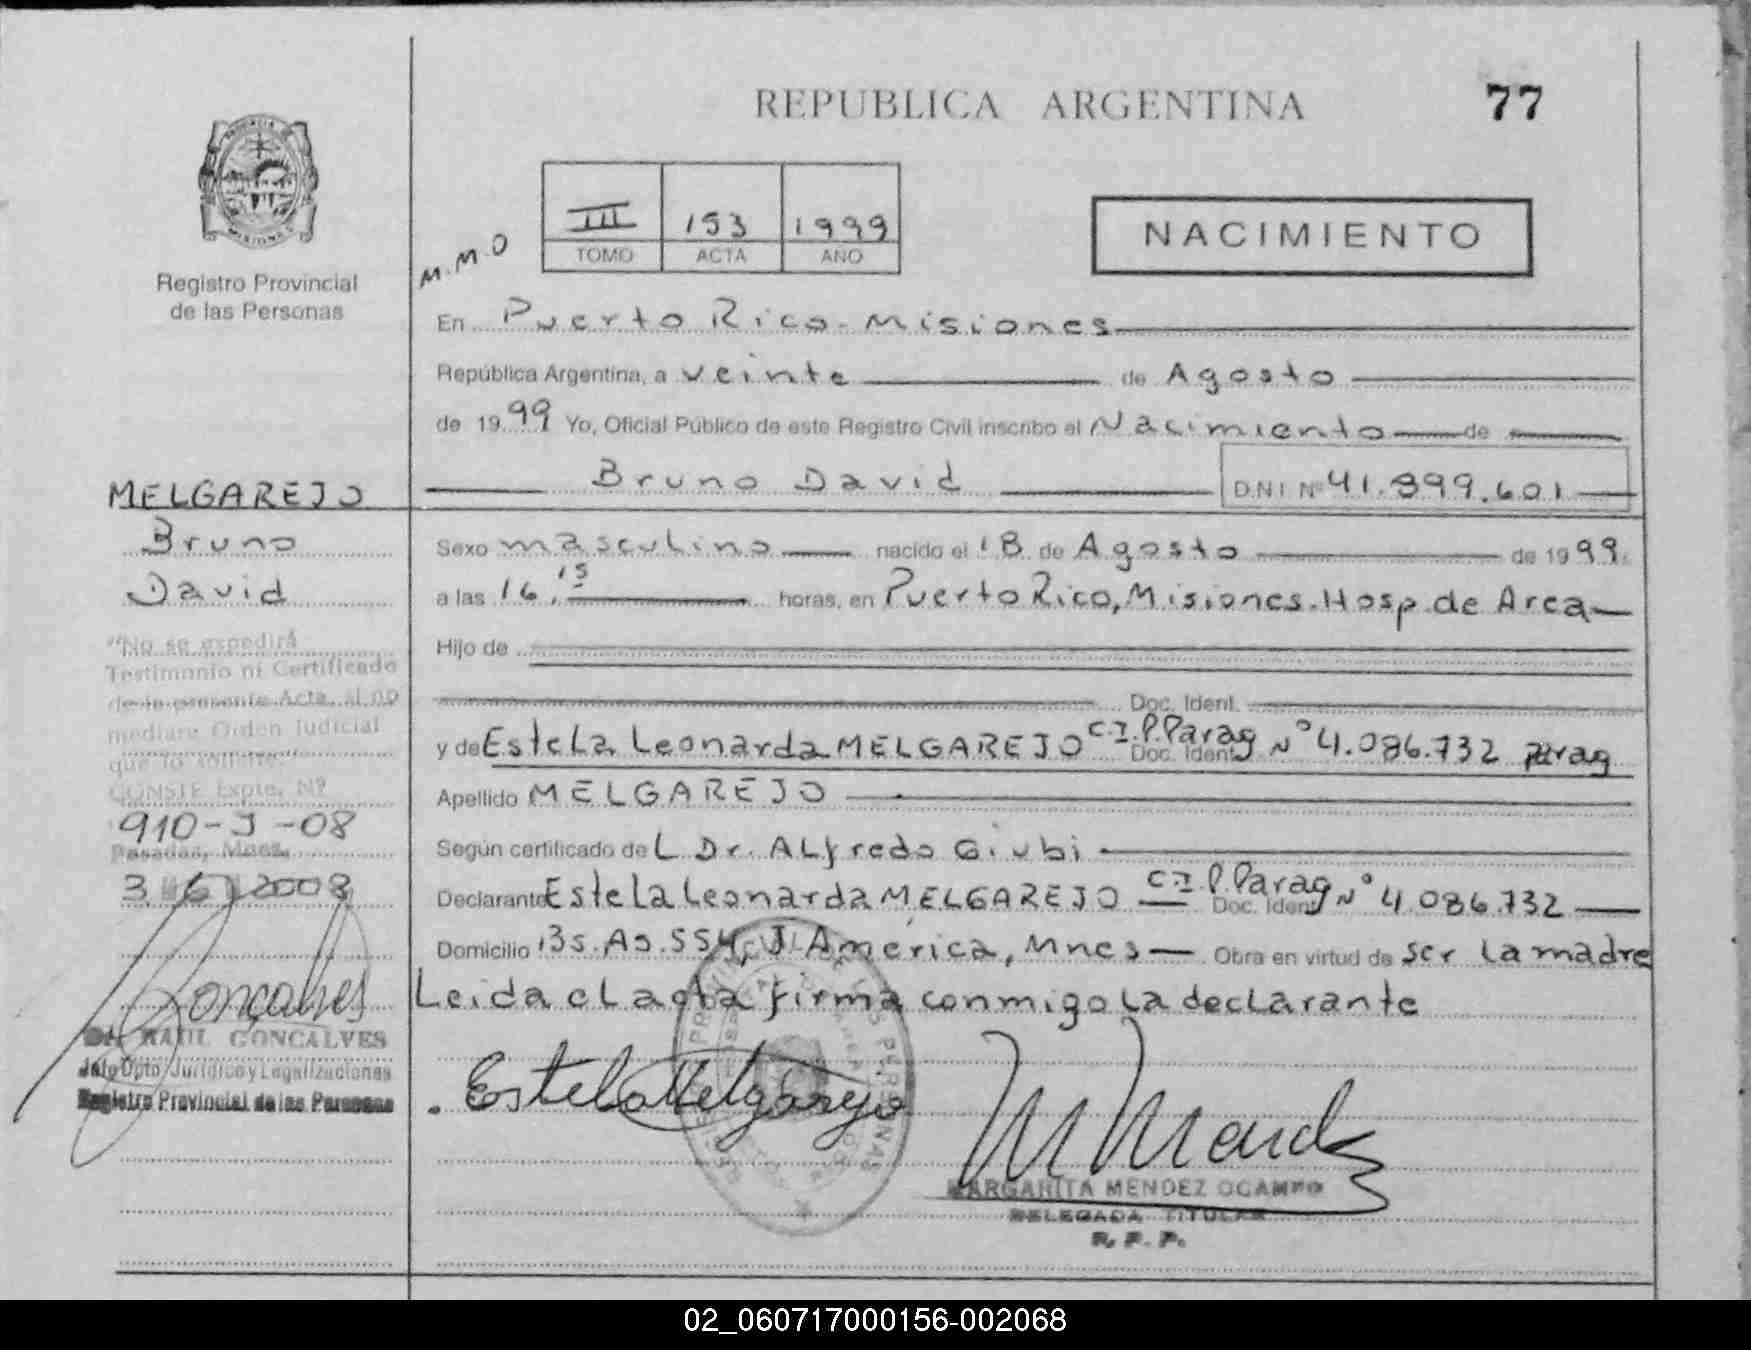 REPUBLICA ARGENTINA
77
PROVINCIA DE
MISIONES
Registro Provincial
de las Personas
M.M.O
III 153 1999
TOMO ACTA AÑO
NACIMIENTO
En Puerto Rico - Misiones
República Argentina, a veinte de Agosto
de 1999 Yo, Oficial Público de este Registro Civil inscribo el Nacimiento de
Bruno David DNI Nº 41.899.601
Sexo masculino nacido el 18 de Agosto de 1999.
a las 16,15 horas, en Puerto Rico, Misiones. Hosp. de Area
Hijo de
Doc. Ident.
y de Estela Leonarda MELGAREJO C.I.P. Parag Doc. Ident. Nº 4.086.732 parag
Apellido MELGAREJO
Según certificado de L Dr. Alfredo Giubi
Declarante Estela Leonarda MELGAREJO C.I.P. Parag Doc. Ident. Nº 4.086.732
Domicilio Bs. As. 554, J. América, Mnes Obra en virtud de ser la madre
Leida el acta firma conmigo la declarante
Estela Melgarejo
M Mendez
MARGARITA MENDEZ OCAMPO
DELEGADA TITULAR
R. P. P.
MELGAREJO
Bruno
David
"No se expedirá
Testimonio ni Certificado
de la presente Acta, si no
mediare Orden Judicial
que lo solicite."
CONSTE Expte. Nº
910-J-08
Posadas, Mnes.
3 2008
Goncalves
Dr. RAUL GONCALVES
Jefe Dpto. Jurídico y Legalizaciones
Registro Provincial de las Personas
02_060717000156-002068